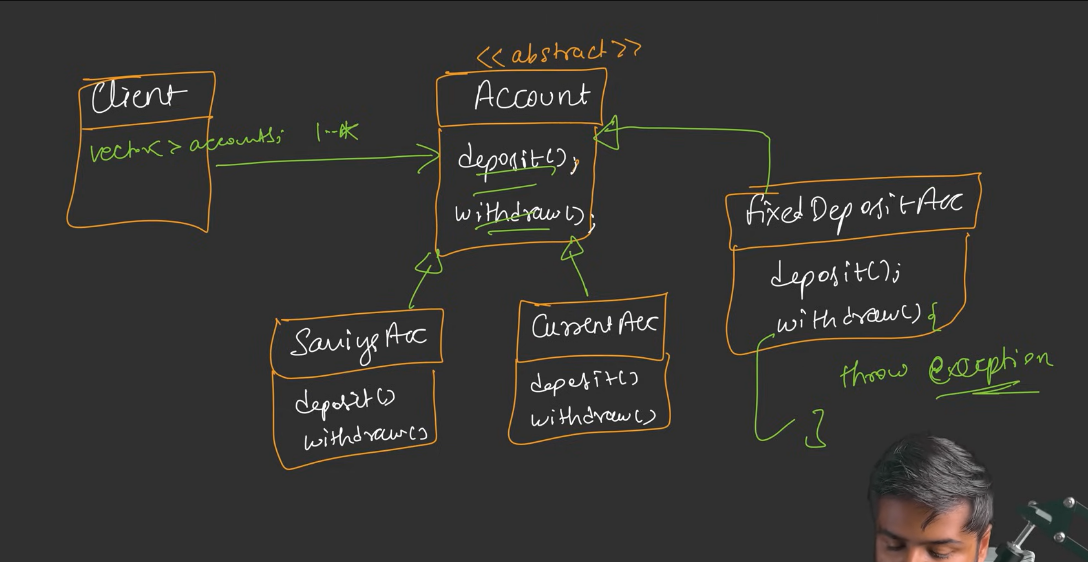 <<abstract>>
Client
vector<> accounts;
1--*
Account
deposit();
withdraw();
fixedDepositAcc
deposit();
withdraw() {
throw exception
}
SavingsAcc
deposit()
withdraw()
CurrentAcc
deposit()
withdraw()